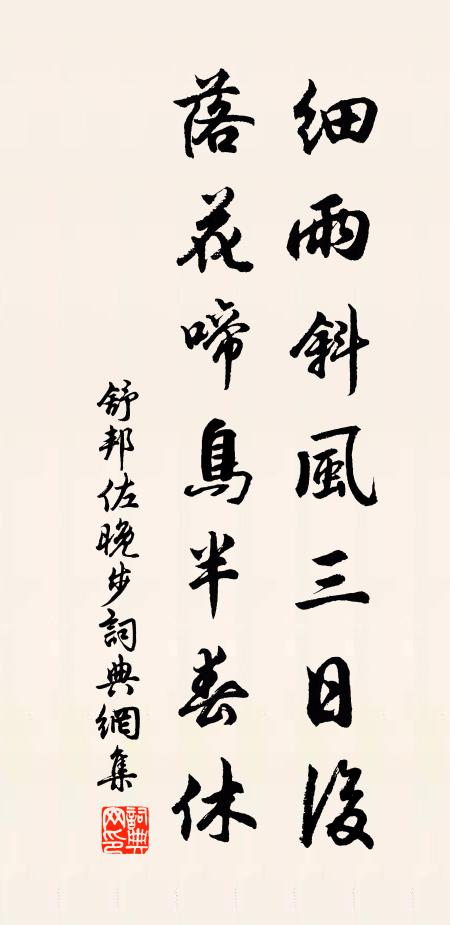 細雨斜風三日後
落花啼鳥半春休
舒邦佐晚步詞典網集
詞典網印